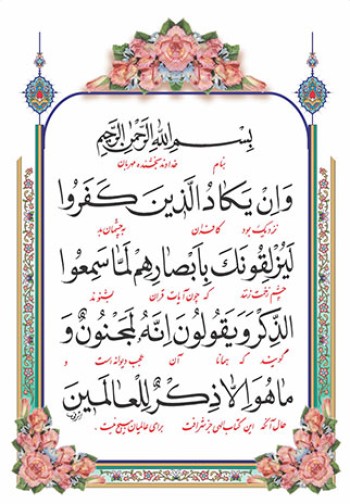 بِسْمِ اللهِ الرَّحْمٰنِ الرَّحِيمِ
بنام خداوند بخشنده و مهربان
وَاِنْ يَكَادُ الَّذينَ كَفَرُوا
نزدیک بود کافران به چشمان بد
لَيُزْلِقُونَكَ بِاَبْصارِهِمْ لَمّا سَمِعُوا
چشم زخمت زنند که چون آیات قرآن بشنوند
الذِّكْرَ وَيَقُولُونَ اِنَّهُ لَمَجْنُونٌ وَ
گویند که همانا آن عجب دیوانه است و
ما هُوَ اِلّا ذِكْرٌ لِلْعالَمينَ
حال آنکه این کتاب الهی جز شرافت برای عالمیان هیچ نیست .